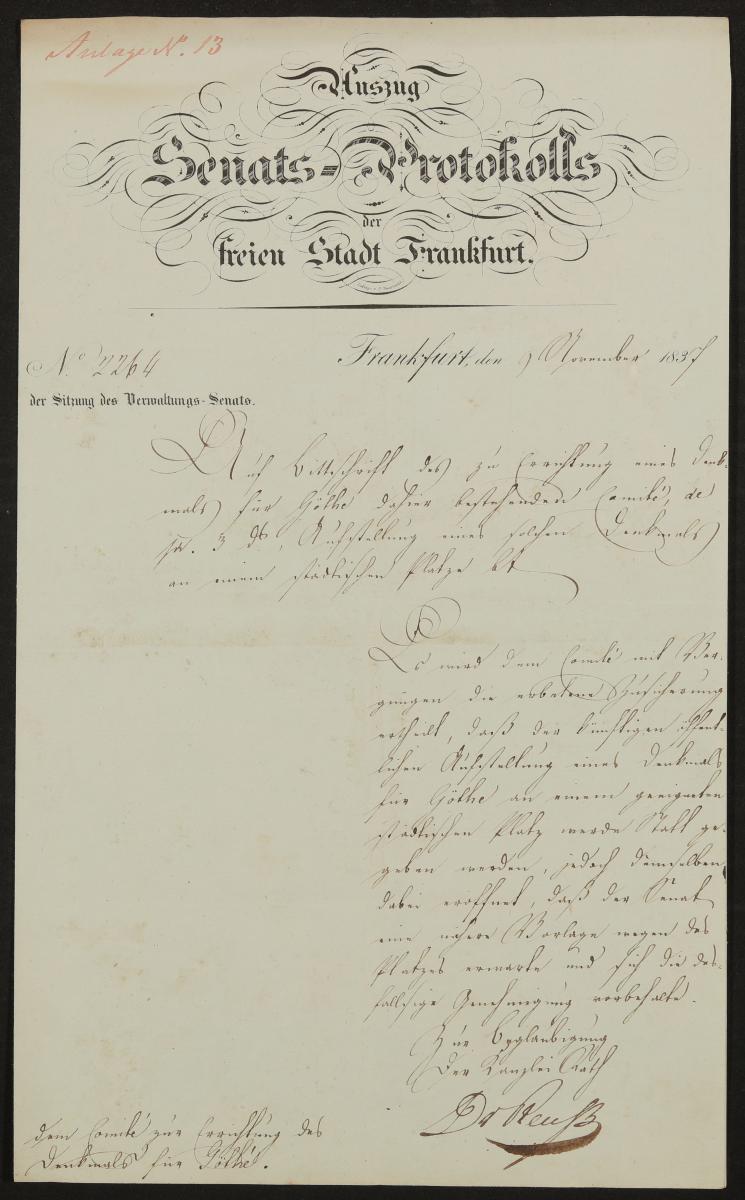 Anlage No. 13
Auszug
Senats-Protokolls
der
freien Stadt Frankfurt.
No. 2264
Frankfurt, den 9 November 1837
der Sitzung des Verwaltungs-Senats.
Auf Bittschrift des zu Errichtung eines Denk-
mals für Göthe dahier bestehenden Comité, de
pr. 3 ds, Aufstellung eines solchen Denkmals
an einem städtischen Platze bt
Es wird dem Comité mit Ver-
gnügen die erbetene Zusicherung
ertheilt, daß der künftigen öffent-
lichen Aufstellung eines Denkmals
für Göthe an einem geeigneten
städtischen Platz werde Statt ge-
geben werden, jedoch demselben
dabei eröffnet, daß der Senat
eine nähere Vorlage wegen des
Platzes erwarte und sich die des-
fallsige Genehmigung vorbehalte.
Zur Beglaubigung
Der Kanzlei Rath
Dr Reuß
Dem Comité zur Errichtung des
Denkmals für Göthe.